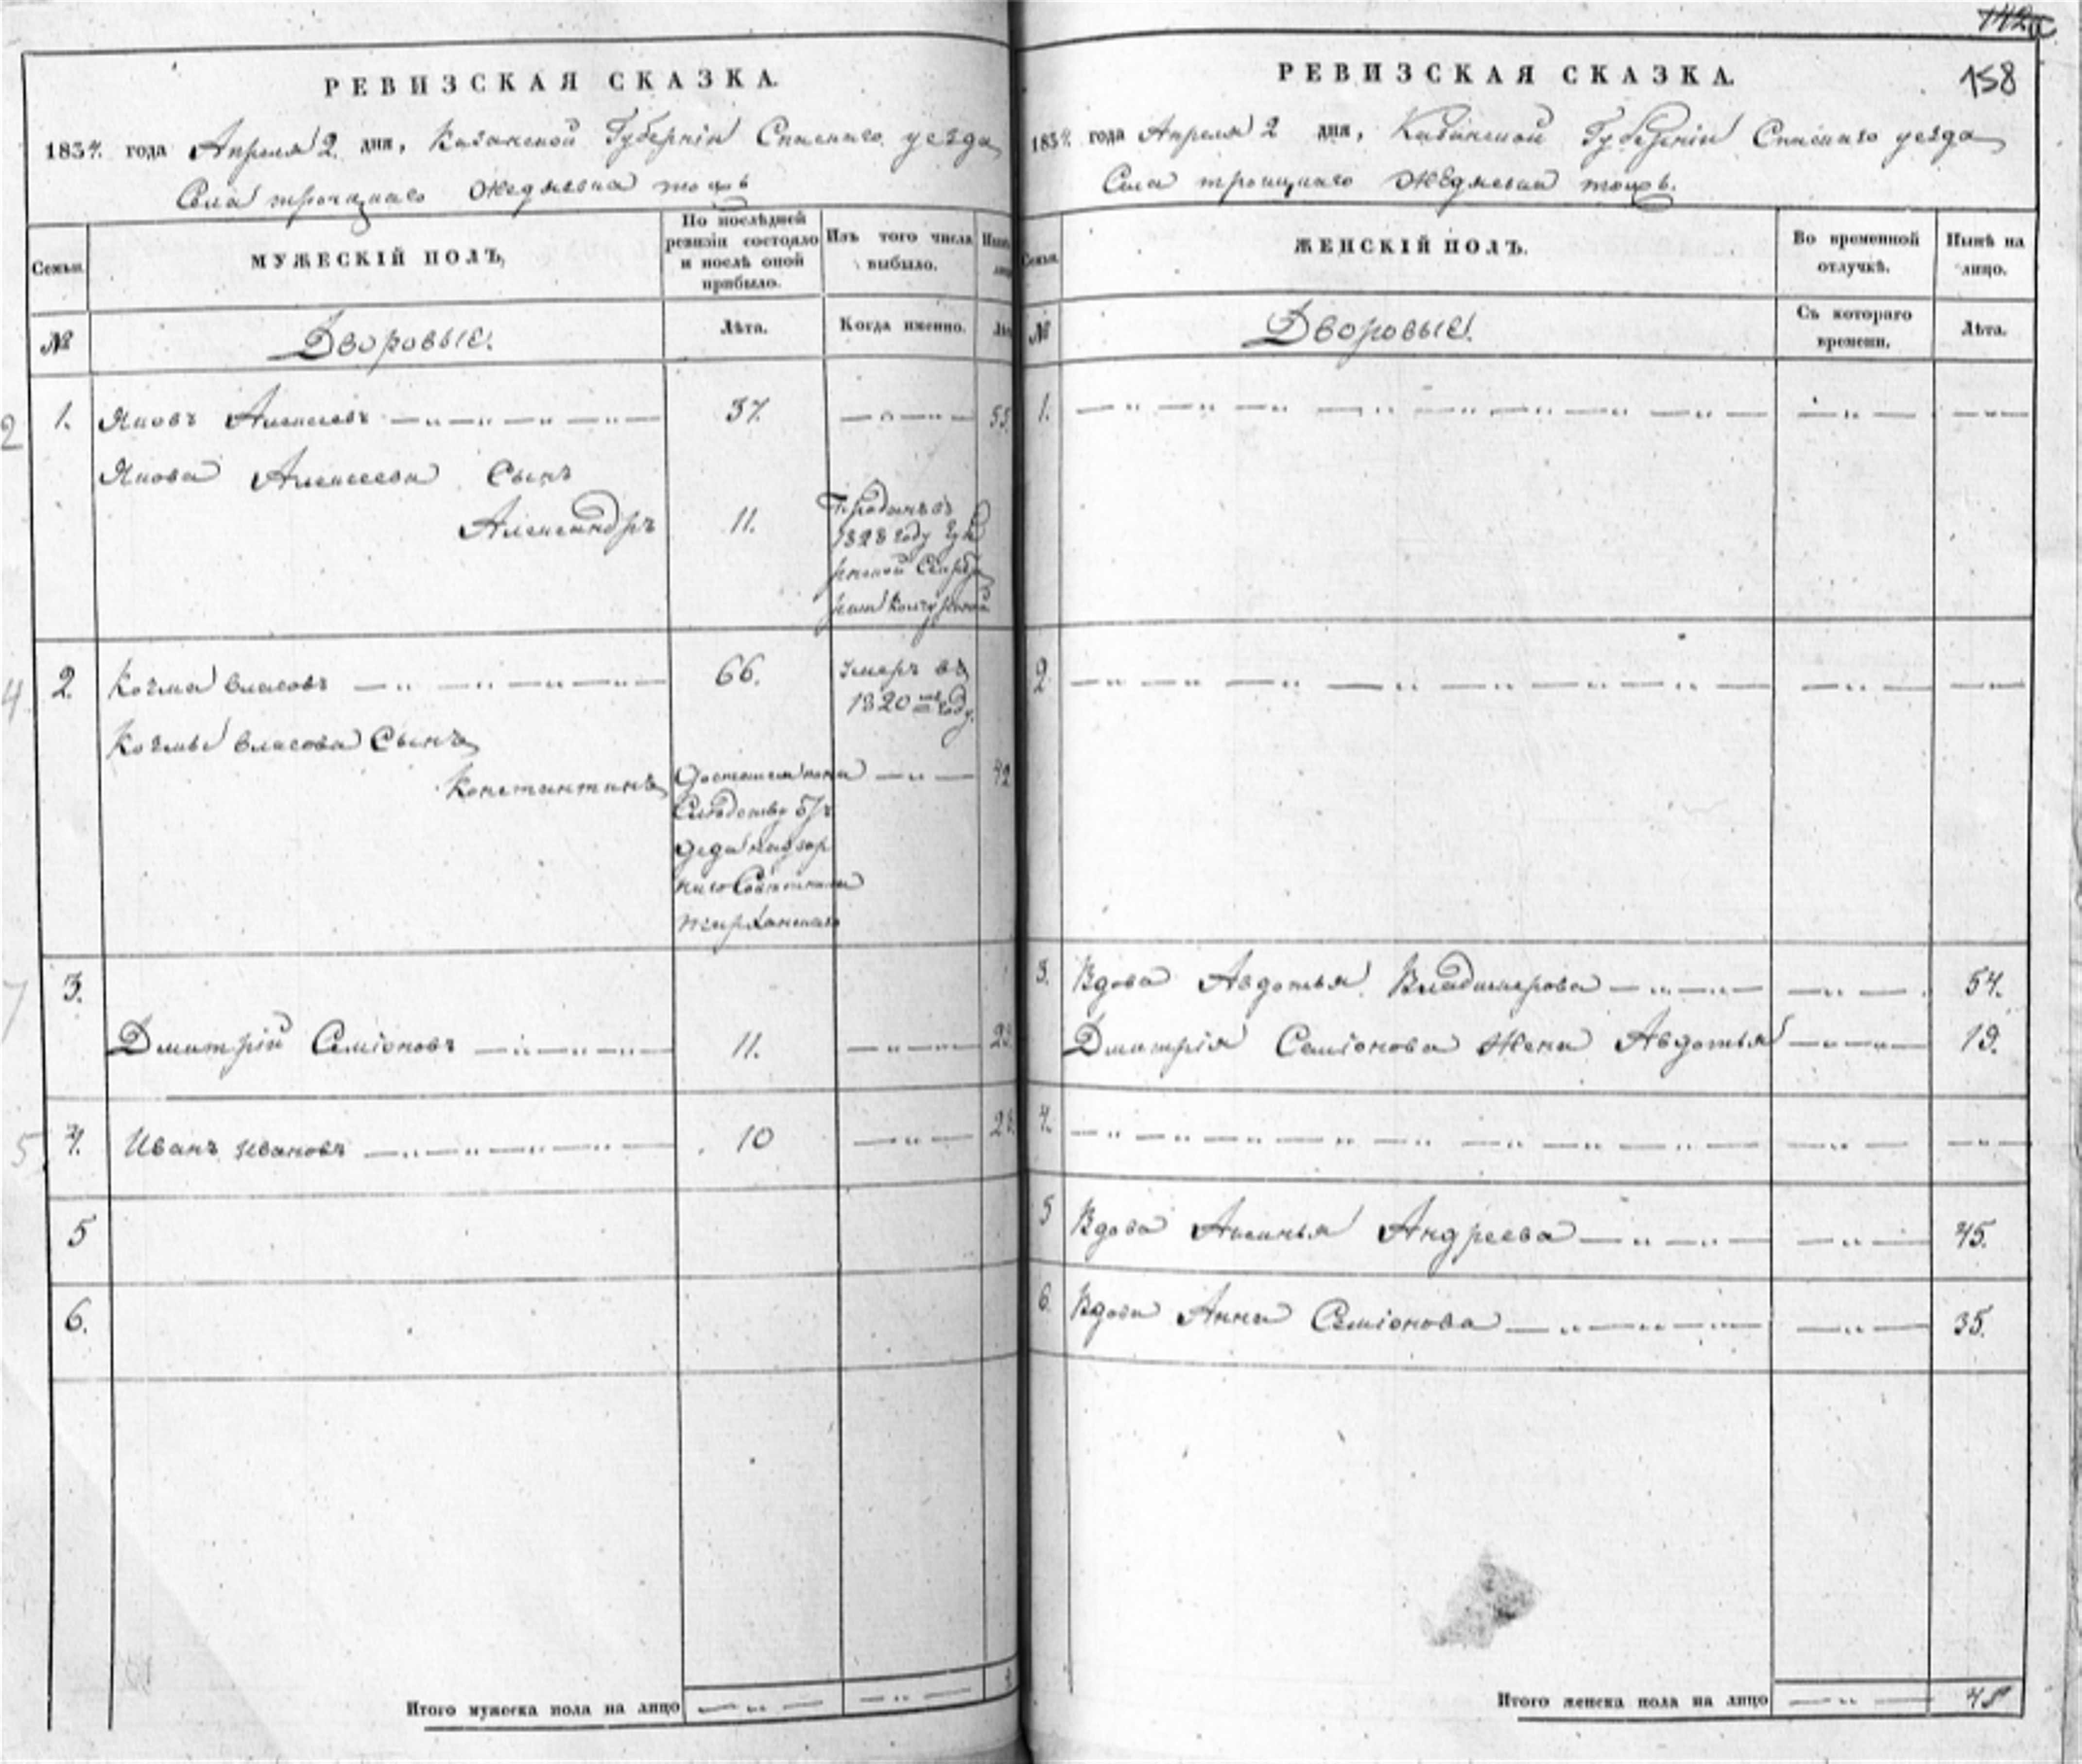 РЕВИЗСКАЯ СКАЗКА.
1834. года Апреля 2. дня, Казанской Губернiи Спаскаго уезда
Села троицкаго Жедмевка тожъ
Семьи.
МУЖЕСКIЙ ПОЛЪ,
По послѣдней ревизiи состояло и послѣ оной прибыло.
Изъ того числа выбыло.
№
Дворовые.
Лѣта.
Когда именно.
1. Яковъ Алексеевъ 37. 55.
Якова Алексеева Сынъ
Александръ 11.
1828 году
2. Козма власовъ 66. Умеръ въ
1820 году
Козмы власова Сынъ
Константинъ 42
3.
Дмитрiй Семiоновъ 11.
4. Иванъ Ивановъ 10
5
6.
Итого мужеска пола на лицо
142
158
РЕВИЗСКАЯ СКАЗКА.
1834. года Апреля 2 дня, Казанской Губернiи Спаскаго уезда
Села троицкаго Жедмевка тожъ.
Семьи.
ЖЕНСКIЙ ПОЛЪ.
Во временной отлучкѣ.
Нынѣ на лицо.
№
Дворовые.
Съ котораго времени.
Лѣта.
1.
2.
3. Вдова Авдотья Владимерова 54.
Дмитрiя Семiонова Жена Авдотья 19.
4.
5 Вдова Аксинья Андреева 45.
6. Вдова Анна Семiонова 35.
Итого женска пола на лицо